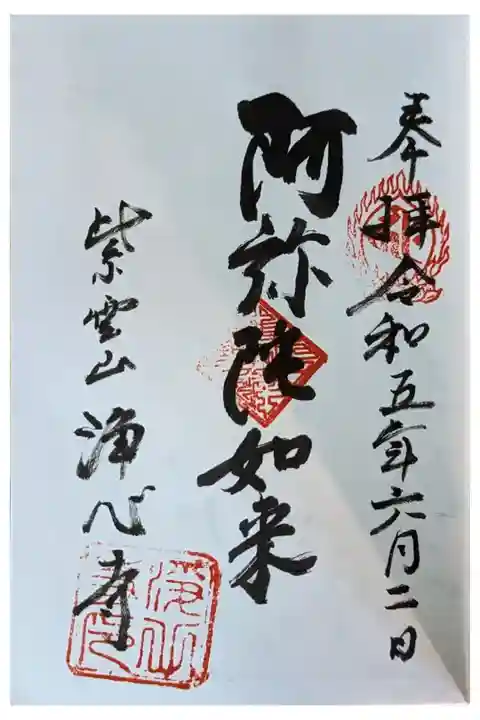 奉拝令和五年六月二日
阿弥陀如来
紫雲山浄心寺